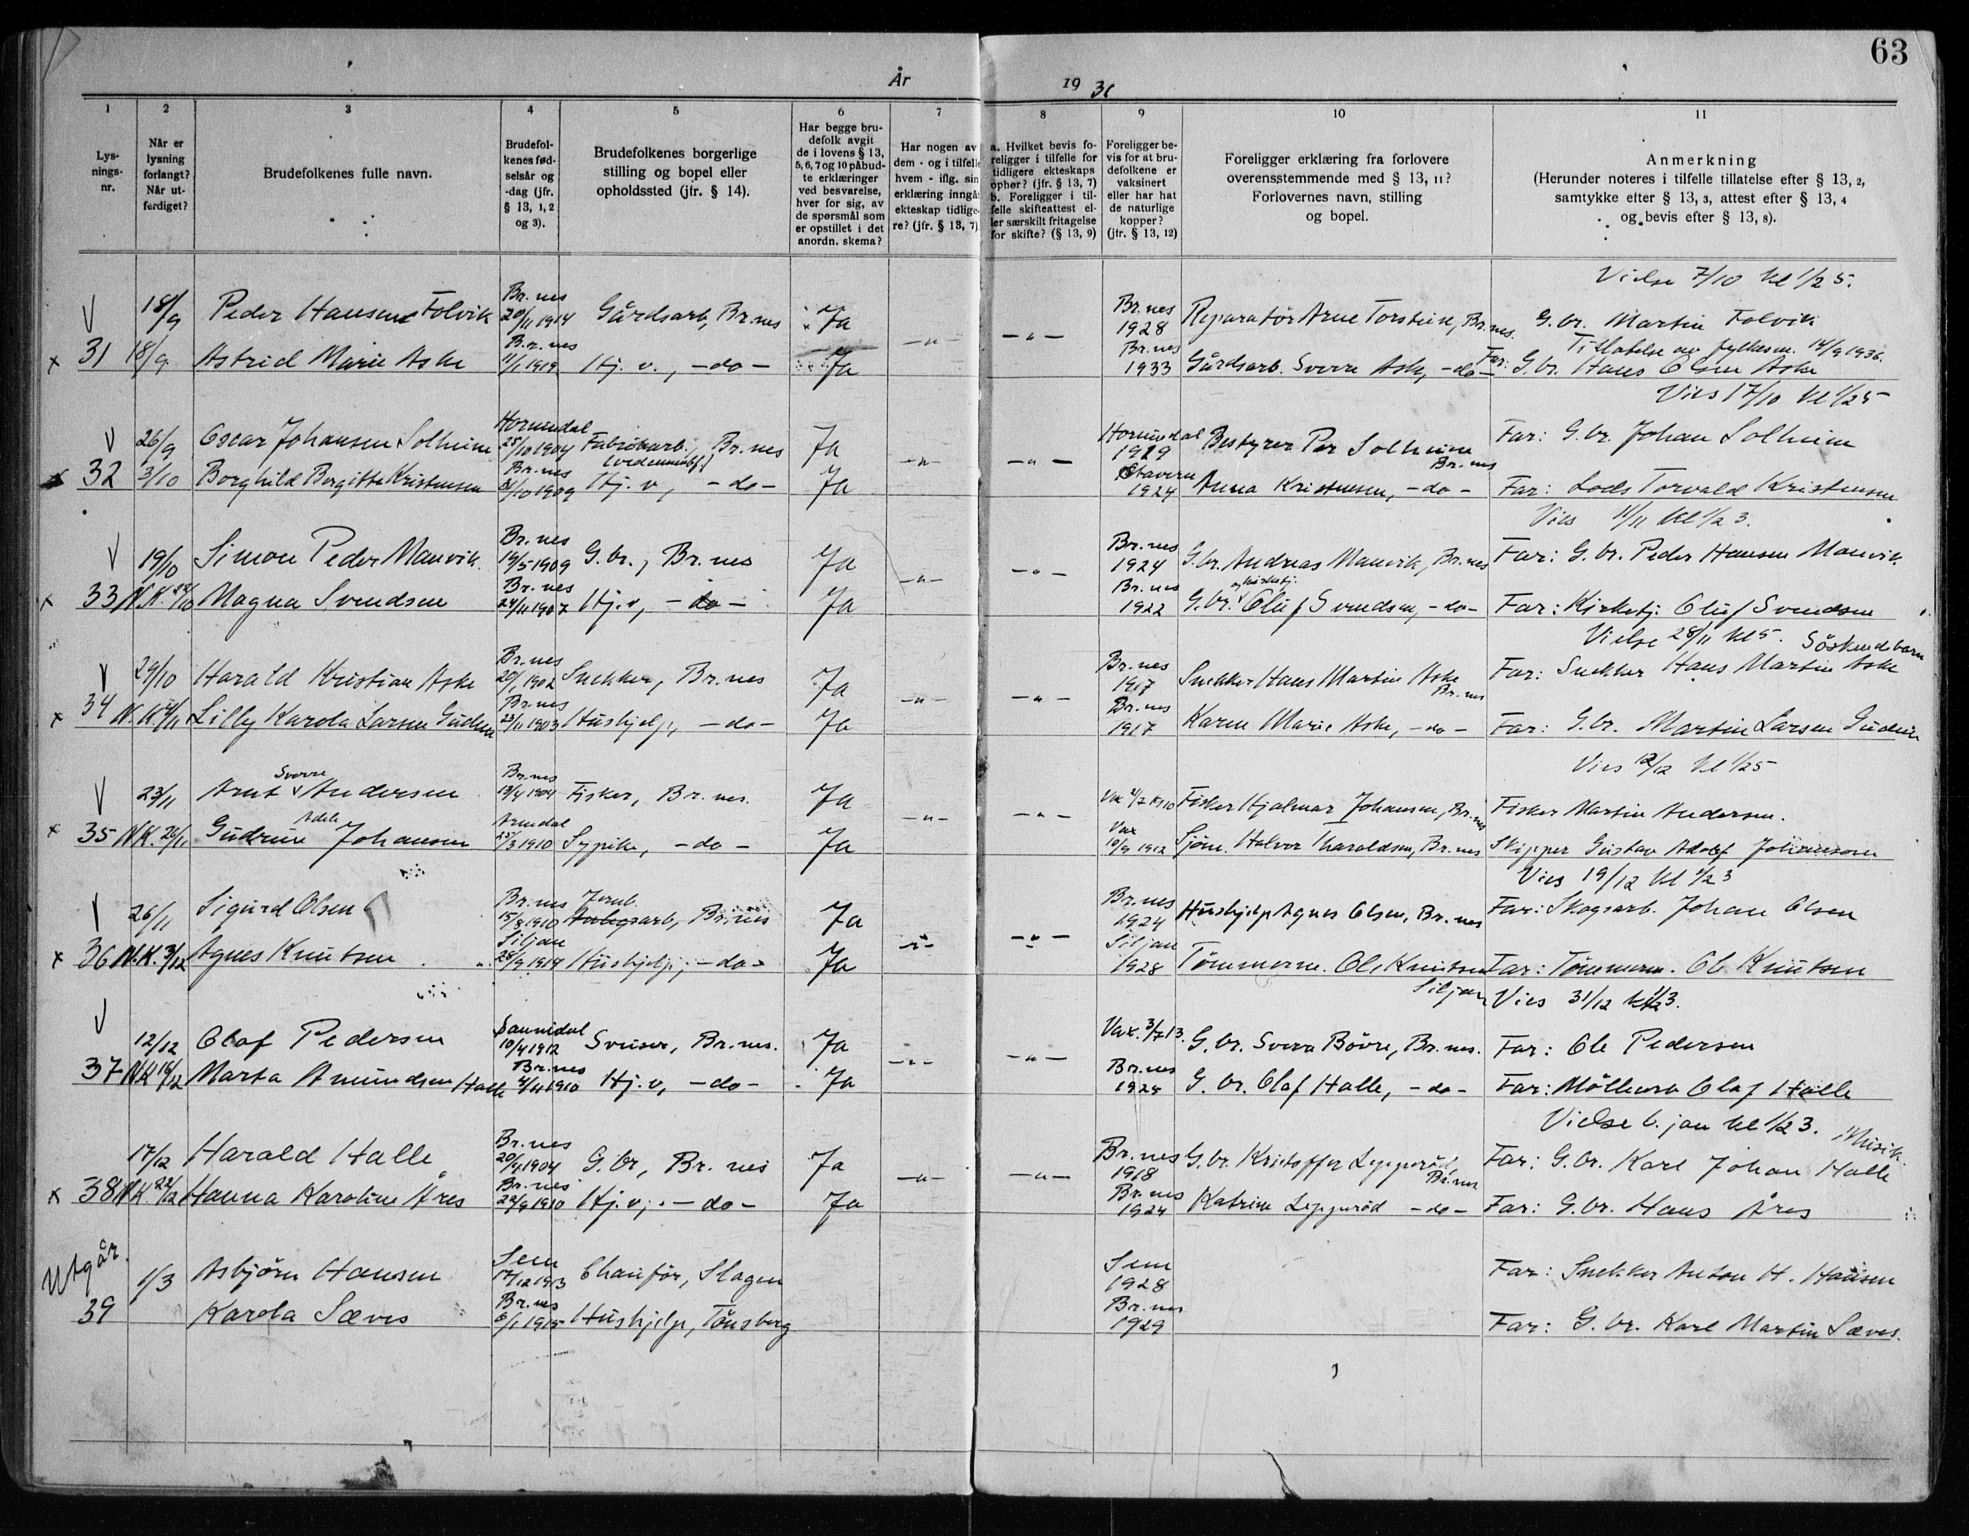 63
År 19 36
1 2 3 4 5 6 7 8 9 10 11
Lys-
nings-
nr.
Når er
lysning
forlangt?
Når ut-
ferdiget?
Brudefolkenes fulle navn.
Brudefol-
kenes fød-
selsår og
-dag (jfr.
§ 13, 1, 2
og 3).
Brudefolkenes borgerlige
stilling og bopel eller
opholdssted (jfr. § 14).
Har begge bru-
defolk avgit
de i lovens § 13,
5, 6, 7 og 10 påbud-
te erklæringer
ved besvarelse,
hver for sig, av
de spørsmål som
er opstillet i det
anordn. skema?
Har nogen av
dem - og i tilfelle
hvem - iflg. sin
erklæring inngåt
ekteskap tidlige-
re? (jfr. § 13, 7)
a. Hvilket bevis fo-
religger i tilfelle for
tidligere ekteskaps
ophør? (jfr. § 13, 7)
b. Foreligger i til-
felle skifteattest el-
ler særskilt fritagelse
for skifte? (§ 13, 9)
Foreligger be-
vis for at bru-
defolkene er
vaksinert
eller har hat
de naturlige
kopper?
(jfr. § 13, 12)
Foreligger erklæring fra forlovere
overensstemmende med § 13, 11?
Forlovernes navn, stilling
og bopel.
Anmerkning
(Herunder noteres i tilfelle tillatelse efter § 13, 2,
samtykke efter § 13, 3, attest efter § 13, 4
og bevis efter § 13, 8).
Vielse 7/10 kl 1/2 5.
V 18/9 Peder Hansen Folvik Br.nes 20/11 1914 Gårdsarb, Br.nes Ja -"- -"- Br.nes 1928 Reparatör Arne Torstein, Br.nes. G.br. Martin Folvik
Tillatelse av fylkesm. 14/9 1936.
x 31 18/9 Astrid Marie Aske Br.nes 11/1 1919 Hj. v., -do- Ja Br.nes 1933 Gårdsarb. Sverre Aske, -do- Far: G.br. Hans Olsen Aske
Vies 17/10 kl 1/2 5
V 26/9 Oscar Johansen Solheim Hornindal 25/10 1904 Fabrikarb. Br.nes Ja -"- -"- Hornindal 1919 Bestyrer Per Solheim Br.nes Far: G.br. Johan Solheim
x 32 3/10 Borghild Bergitte Kristensen Br.nes 31/10 1909 Hj. v, -do- Ja Stavern 1924 Anna Kristensen, -do- Far: Lods Torvald Kristensen
Vies 11/11 kl 1/2 3.
V 19/10 Simon Peder Manvik. Br.nes 19/5 1909 G.br., Br.nes Ja -"- -"- Br.nes 1924 G.br. Andreas Manvik, Br.nes Far: G.br. Peder Hansen Manvik.
x 33 N.K. 22/10 Magna Svendsen Br.nes 24/11 1907 Hj. v, -do- Ja Br.nes 1922 G.br. og kirketj. Oluf Svendsen, -do- Far: Kirketj. Oluf Svendsen
Vielse 28/11 kl 5. Söskendbarn
V 29/10 Harald Kristian Aske Br.nes 20/1 1902 Snekker, Br.nes Ja -"- -"- Br.nes 1917 Snekker Hans Martin Aske Br.nes Far: Snekker Hans Martin Aske
x 34 N.K. Lilly Karola Larsen Gudem Br.nes 23/11 1903 Hushjelp, -do- Ja Br.nes 1917 Karen Marie Aske, -do- Far: G.br. Martin Larsen Gudem
Vies 12/12 kl 1/2 5
V 23/11 Arnt Sverre Andersen Br.nes 13/4 1904 Fisker, Br.nes. Ja -"- -"- Fisker Hjalmar Johansen, Br.nes Fisker Martin Andersen.
x 35 N.K. 26/11 Gudrun Adele Johansen Arendal 25/3 1910 Sypike, -do- Ja Vax 10/9 1912 Sjöm. Halvor Haraldsen, Br.nes Skipper Gustav Adolf Johansen
Vies 19/12 kl 1/2 3
V 26/11 Sigurd Olsen Br.nes 15/8 1910 Jernb. arb, Br.nes Ja -"- -"- Br.nes 1924 Hushjelp Agnes Olsen, Br.nes Far: Skogsarb. Johan Olsen
x 36 N.K. 3/12 Agnes Knutsen Siljan 28/9 1914 Hushjelp, -do- Ja Siljan 1928 Tömmerm. Ole Knutsen Siljan Far: Tömmerm. Ole Knutsen
Vies 31/12 kl 1/2 3.
V 12/12 Olaf Pedersen Sannidal 10/4 1912 Sveiser, Br.nes. Ja -"- -"- Vax. 3/7 13. G.br. Sverre Bövre, Br.nes. Far: Ole Pedersen
37 N.K. 18/12 Marta Amundsen Halle Br.nes 4/11 1910 Hj. v, -do- Ja Br.nes 1925 G.br. Olaf Halle, -do- Far: Möller Olaf Halle
Vielse 6. jan kl 1/2 3. Musik.
17/12 Harald Halle Br.nes 20/4 1904 G.br, Br.nes Ja -"- -"- Br.nes 1918 G.br. Kristoffer Lepperöd, Br.nes Far: G.br. Karl Johan Halle
x 38 N.K. 22/12 Hanna Karoline Åres Br.nes 22/9 1910 Hj. v, -do- Ja Br.nes 1924 Katrine Lepperöd -do- Far: G.br. Hans Åres
Utgår.
1/3 Asbjørn Hansen Sem 17/12 1913 Chauffør, Slagen Sem 1928 Far: Snekker Anton H. Hansen
39 Karola Sæves Br.nes 6/1 1915 Hushjelp, Tönsberg Br.nes 1929 Far: G.br. Karl Martin Sæves.